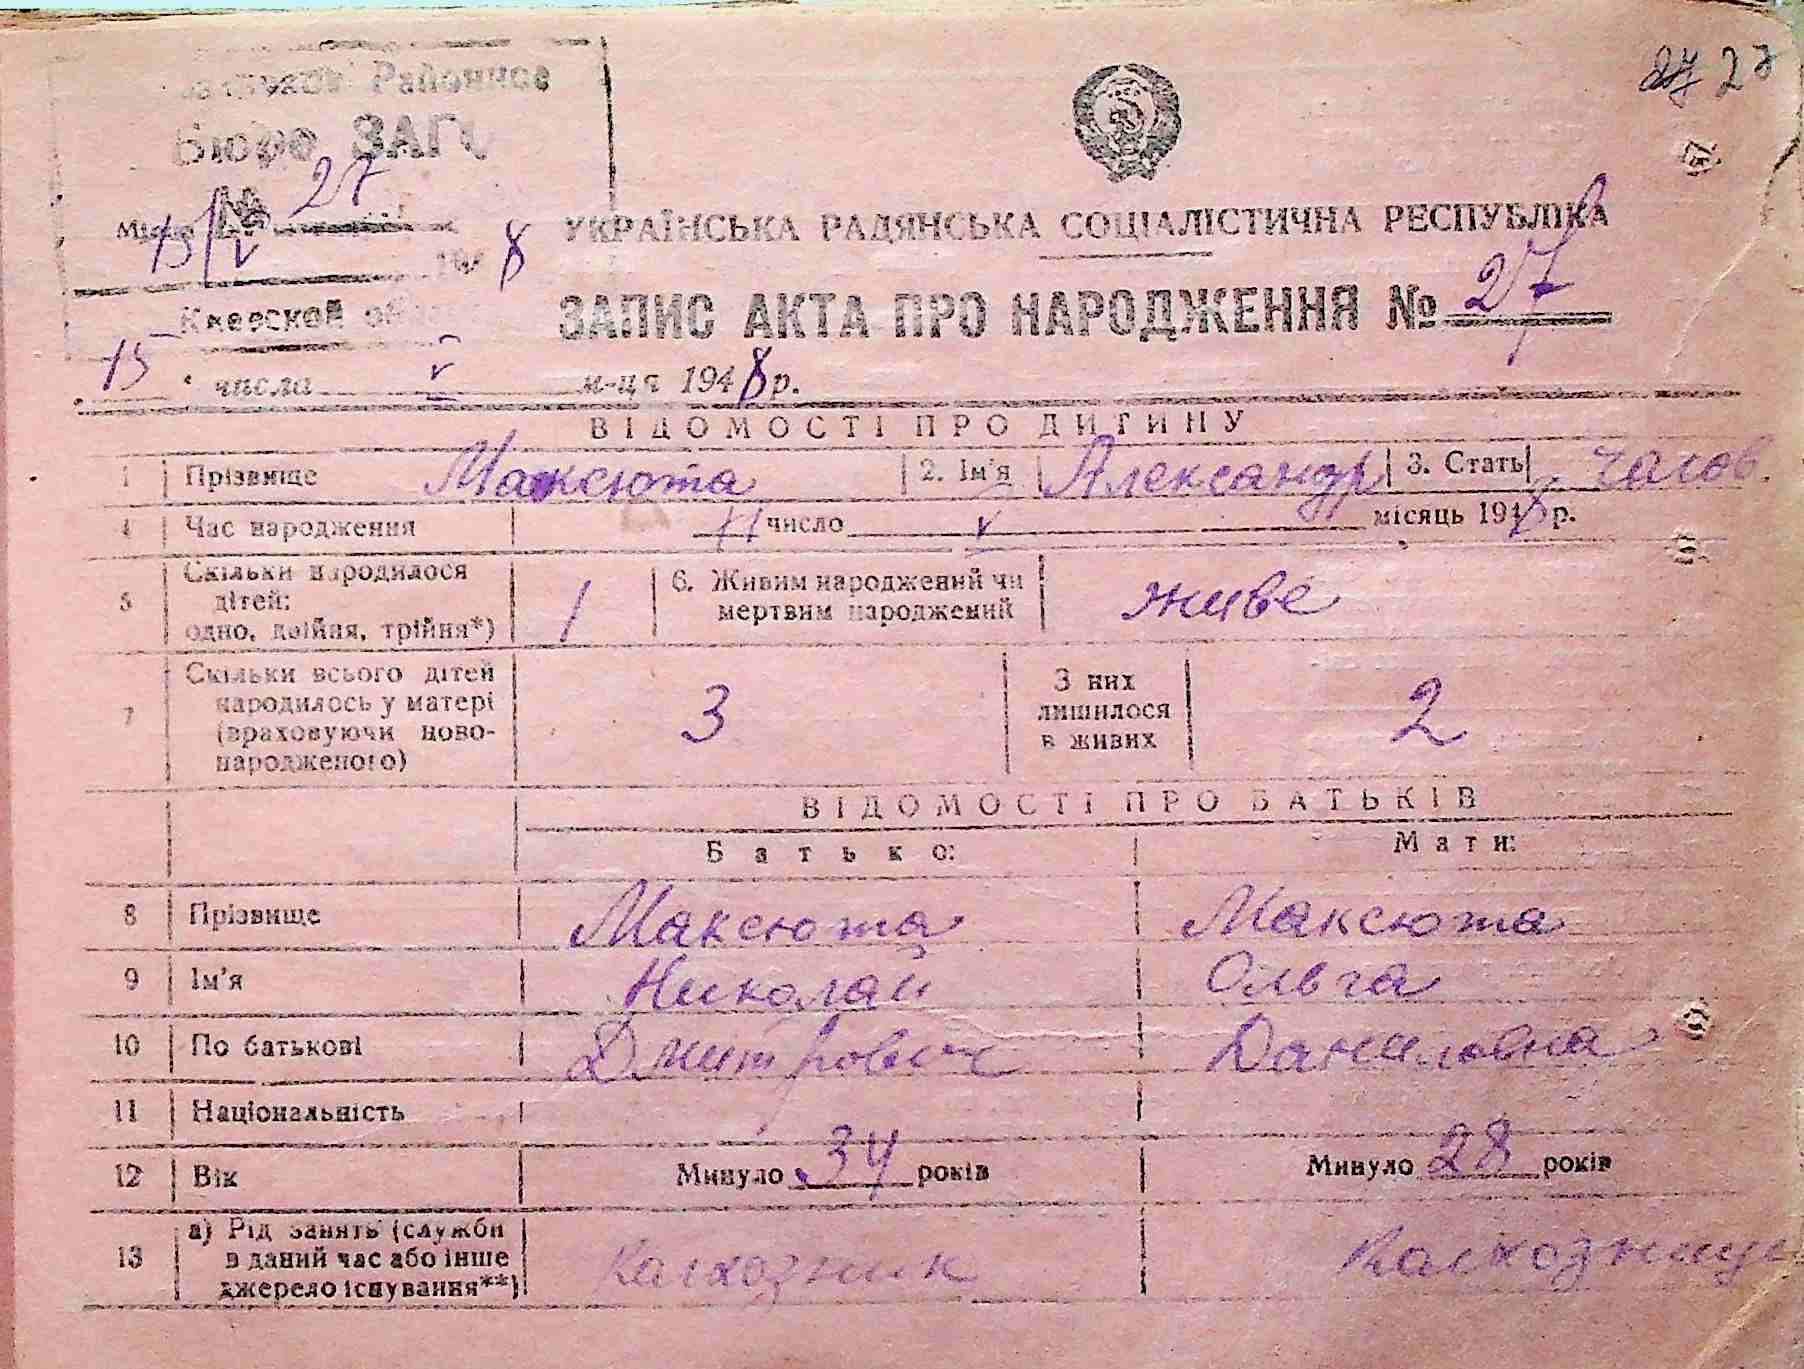 27 27
Районное
Бюро ЗАГС
№ 27
15/V 1948
Киевской
УКРАЇНСЬКА РАДЯНСЬКА СОЦІАЛІСТИЧНА РЕСПУБЛІКА
ЗАПИС АКТА ПРО НАРОДЖЕННЯ № 27
15 числа V м-ця 1948 р.
ВІДОМОСТІ ПРО ДИТИНУ
1 Прізвище Максюта 2. Ім'я Александр 3. Стать чолов.
4 Час народження 11 число V місяць 1948 р.
5 Скільки народилося дітей: одно, двійня, трійня*) 1 6. Живим народжений чи мертвим народжений живе
7 Скільки всього дітей народилось у матері (враховуючи ново-народженого) 3 З них лишилося в живих 2
ВІДОМОСТІ ПРО БАТЬКІВ
Батько: Мати:
8 Прізвище Максюта Максюта
9 Ім'я Николай Ольга
10 По батькові Дмитрович Даниловна
11 Національність
12 Вік Минуло 34 років Минуло 28 років
13 а) Рід занять (служби в даний час або інше джерело існування**) Калхозник Калхозниця